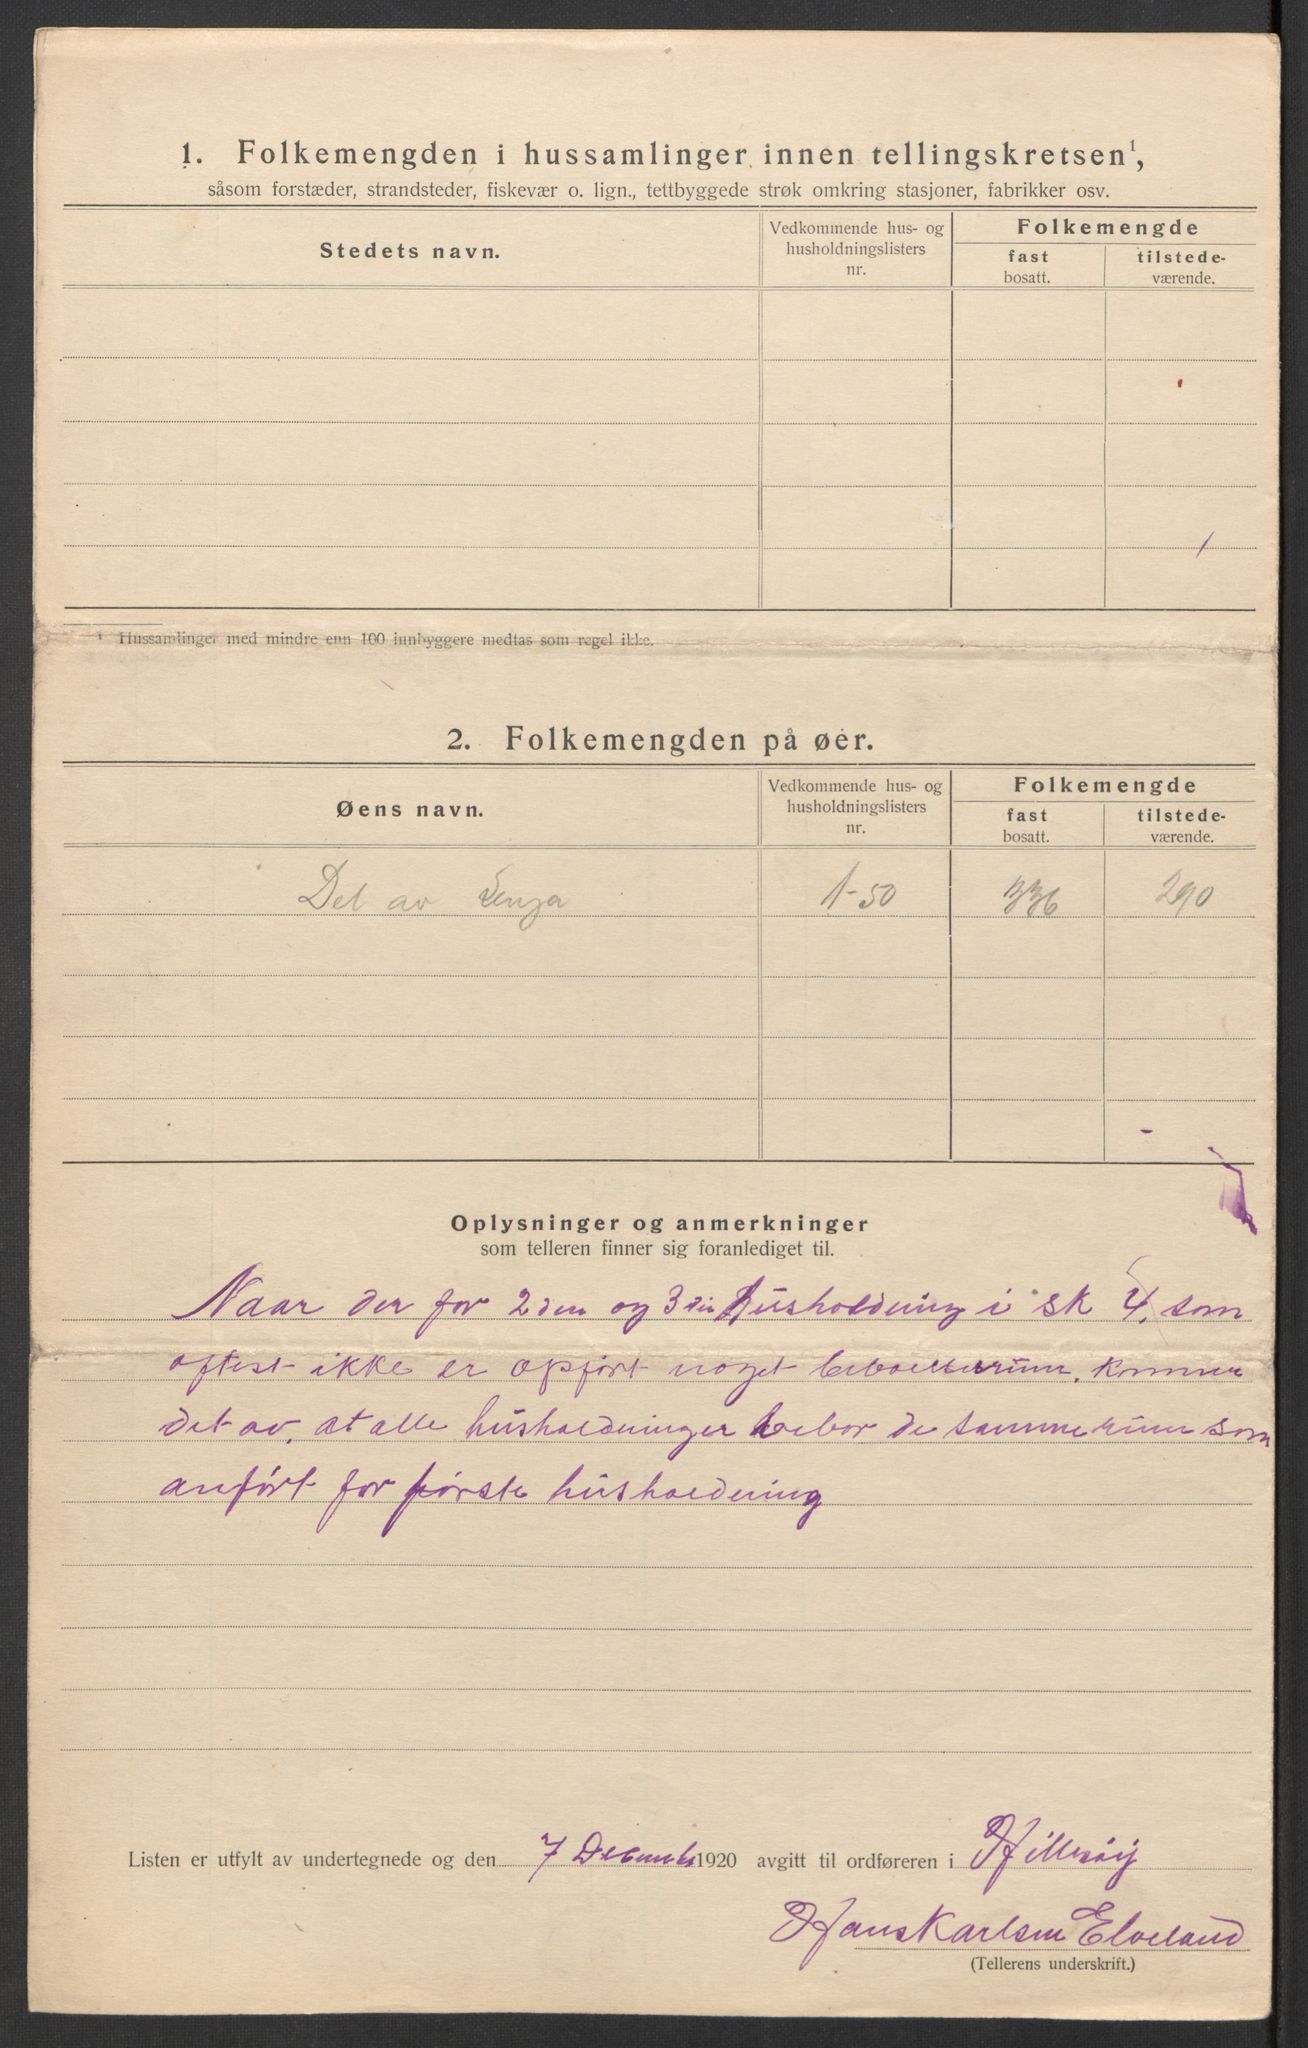 1. Folkemengden i hussamlinger innen tellingskretsen¹,
såsom forstæder, strandsteder, fiskevær o. lign., tettbyggede strøk omkring stasjoner, fabrikker osv.
Stedets navn.
Vedkommende hus- og
husholdningslisters
nr.
Folkemengde
fast
bosatt.
tilstede-
værende.
¹ Hussamlinger med mindre enn 100 innbyggere medtas som regel ikke.
2. Folkemengden på øer.
Øens navn.
Vedkommende hus- og
husholdningslisters
nr.
Folkemengde
fast
bosatt.
tilstede-
værende.
Del av Senja 1-50 336 290
Oplysninger og anmerkninger
som telleren finner sig foranlediget til.
Naar der for 2den og 3die Husholdning i sk 4, som
oftest ikke er opført noget beboelsesrum, kommer
det av, at alle husholdninger bebor de samme rum som
anført for første husholdning
Listen er utfylt av undertegnede og den 7 Decemb 1920 avgitt til ordføreren i Hillesøy
Hans Karlsen Elveland
(Tellerens underskrift.)